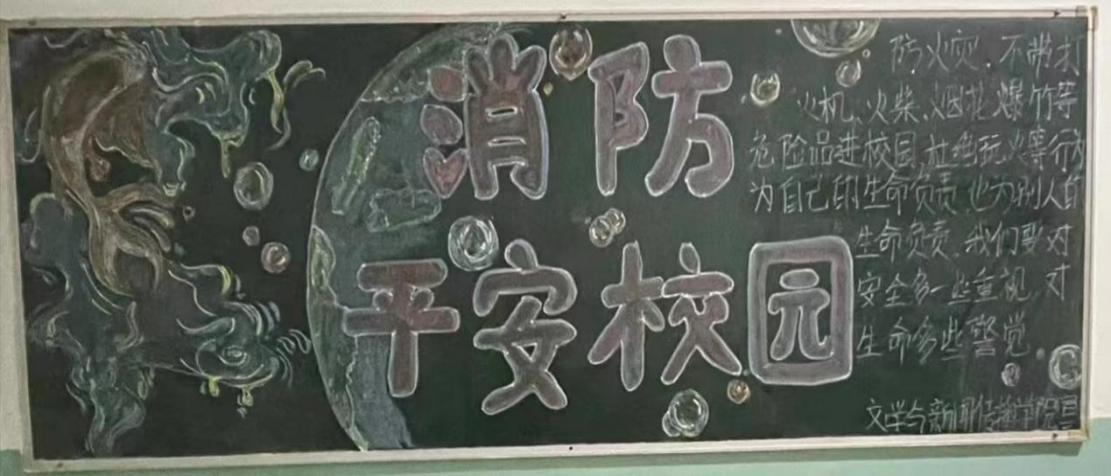 消防
平安校园
防火灾，不带打
火机、火柴、烟花爆竹等
危险品进校园，杜绝玩火等行为
为自己的生命负责，也为别人的
生命负责，我们要对
安全多一些重视，对
生命多些警觉
文学与新闻传播学院宣